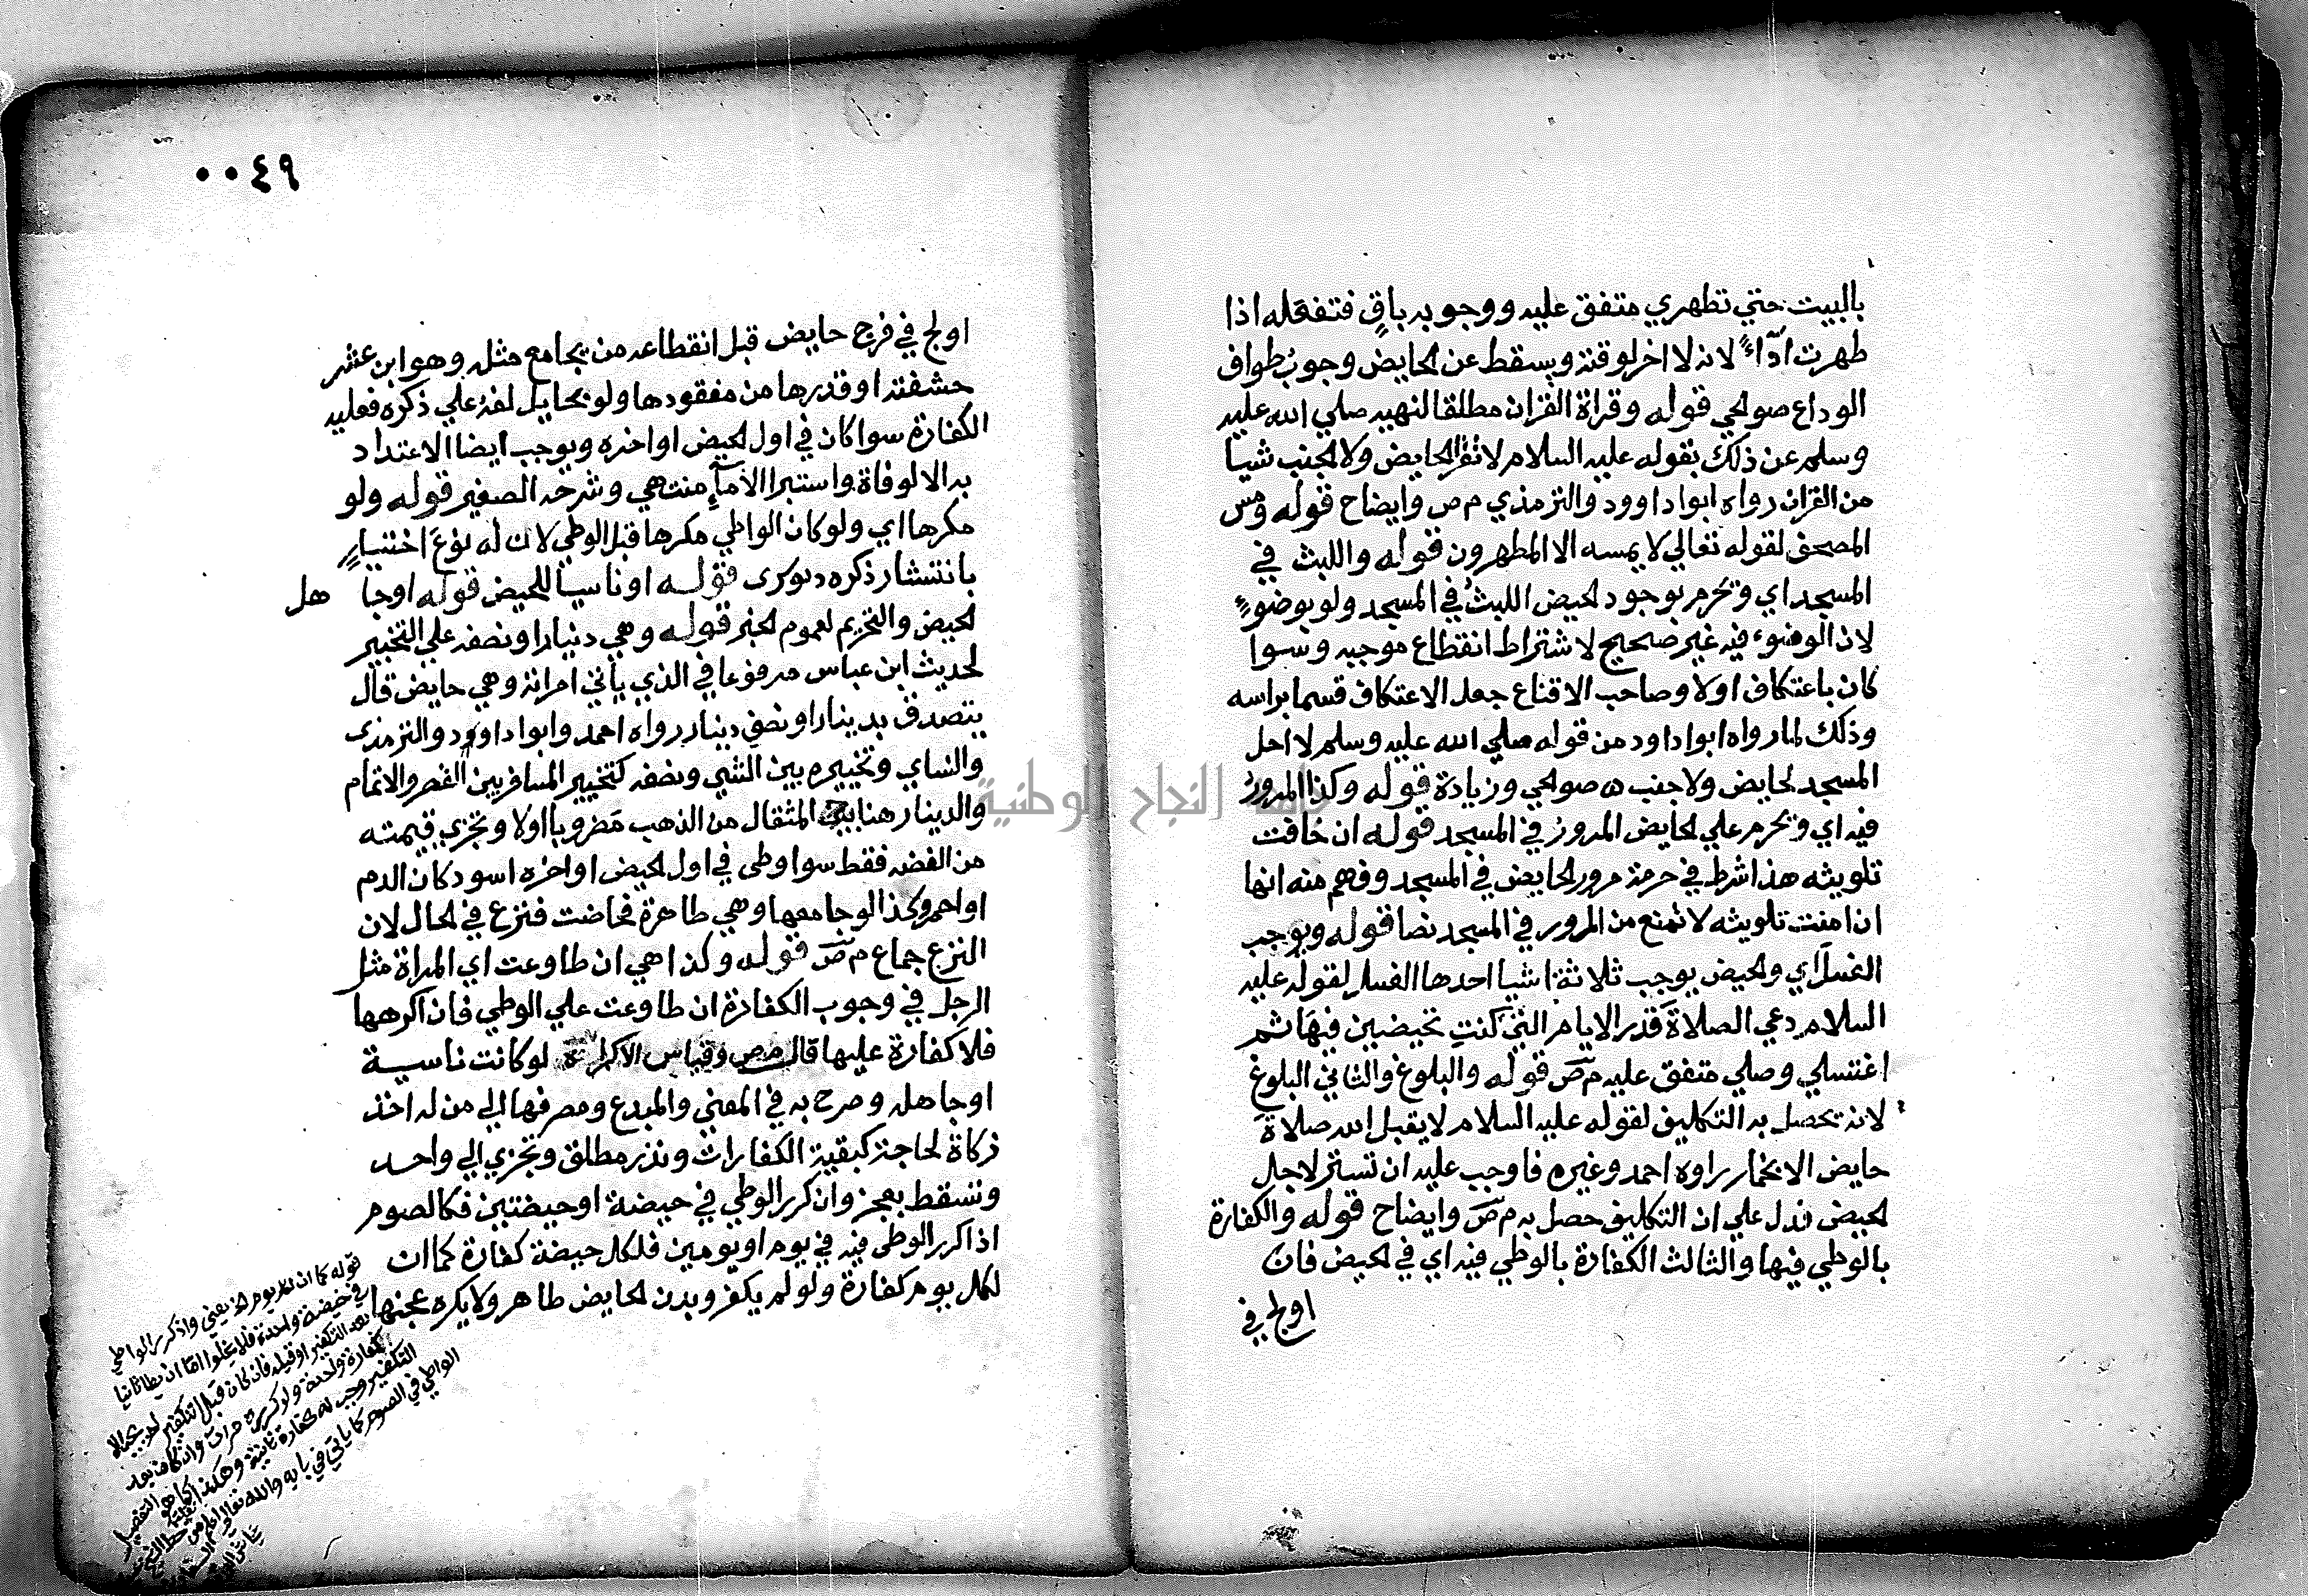 بالبيت حتي تطهري متفق عليه ووجوبه باقٍ فتفعله اذا
طهرت اداءً لانه لا اخر لوقته ويسقط عن الحايض وجوبُ طواف
الوداع صوالحي قوله وقراة القران مطلقا لنهيه صلي الله عليه
وسلم عن ذلك بقوله عليه السلام لا تقرا الحايض ولا الجنب شيا
من القران رواه ابوا داوود والترمذي م ص وايضاح قوله ومس
المصحف لقوله تعالي لا يمسه الا المطهرون قوله واللبث في
المسجد اي ويحرم بوجود الحيض اللبثُ في المسجد ولو بوضوءٍ
لان الوضوء فيه غير صحيح لاشتراط انقطاع موجبه وسوا
كان باعتكاف اولا وصاحب الاقناع جعل الاعتكاف قسما براسه
وذلك لما رواه ابوا داود من قوله صلي الله عليه وسلم لا احل
المسجد لحايض ولا جنب ه صوالحي وزيادة قوله وكذا المرورُ
فيه اي ويحرم علي الحايض المرورُ في المسجد قوله ان خافت
تلويثه هذا شرط في حرمة مرور الحايض في المسجد وفهم منه انها
ان امنت تلويثه لا تمنع من المرور في المسجد نصا قوله ويوجب
الغسل اي والحيض يوجب ثلاثة اشيا احدها الغسل لقوله عليه
السلام دعي الصلاة قدر الايام التي كنتِ تحيضين فيها ثم
اغتسلي وصلي متفق عليه م ص قوله والبلوغ والثاني البلوغ
لانه تحصل به التكليف لقوله عليه السلام لا يقبل الله صلاة
حايض الا بخمار راوه احمد وغيره فاوجب عليه ان تستتر لاجل
الحيض فدل علي ان التكليف حصل به م ص وايضاح قوله والكفارة
بالوطي فيها والثالث الكفارة بالوطي فيه اي في الحيض فان
اولج في
٠٠٤٩
اولج في فرج حايض قبل انقطاعه من يجامع مثله وهو ابن عشر
حشفته او قدرها من مفقودها ولو بحايل لفه علي ذكره فعليه
الكفارة سوا كان في اول الحيض او اخره ويوجب ايضا الاعتداد
به الا لوفاة واستبرا الاماءِ منتهي وشرحه الصغير قوله ولو
مكرها اي ولو كان الواطي مكرها قبل الوطي لان له نوعَ اختيارٍ
بانتشار ذكره قوله او ناسيا للحيض قوله او جا هل
الحيض والتحريم لعموم الخبر قوله وهي دينار او نصفه علي التخيير
لحديث ابن عباس مرفوعا في الذي ياتي امراته وهي حايض قال
يتصدق بدينار او نصف دينار رواه احمد وابوا داوود والترمذي
والنساي وتخييره بين الشي ونصفه كتخيير المسافر بين القصر والاتمام
والدينار هنا المثقال من الذهب مضروبا اولا وتجزي قيمته
من الفضه فقط سوا وطي في اول الحيض او اخره اسود كان الدم
او احمر وكذا لو جامعها وهي طاهرة فحاضت فنزع في الحال لان
النزع جماع م ص قوله وكذا هي ان طاوعت اي المراة مثل
الرجل في وجوب الكفارة ان طاوعت علي الوطي فان اكرهها
فلا كفارة عليها قال م ص وقياس لو كانت ناسية
او جاهله وصرح به في المغني والمبدع ومصرفها الي من له اخذ
زكاة لحاجة كبقية الكفارات ونذر مطلق وتجزي الي واحد
وتسقط بعجز وان كرر الوطي في حيضة او حيضتين فكالصوم
اذا كرر الوطي فيه في يوم او يومين فلكل حيضة كفارة كما ان
لكل يوم كفارة ولو لم يكفر وبدن الحايض طاهر ولا يكره عجنها
قوله كما ان لكل يوم الخ يعني واذ كرر الواطي
في حيضة واحدة فلا يخلوا اما ان يطا ثانيا
بعد التكفير او قبله فان كان قبل التكفير لم
كفارة واحدة ولو كرره مرات وان كان بعد
التكفير وجب له كفارة ثانية وهكذا كما هو التفصيل
الواطي في الصوم كما ياتي في بابه والله تعالي اعلم من خط